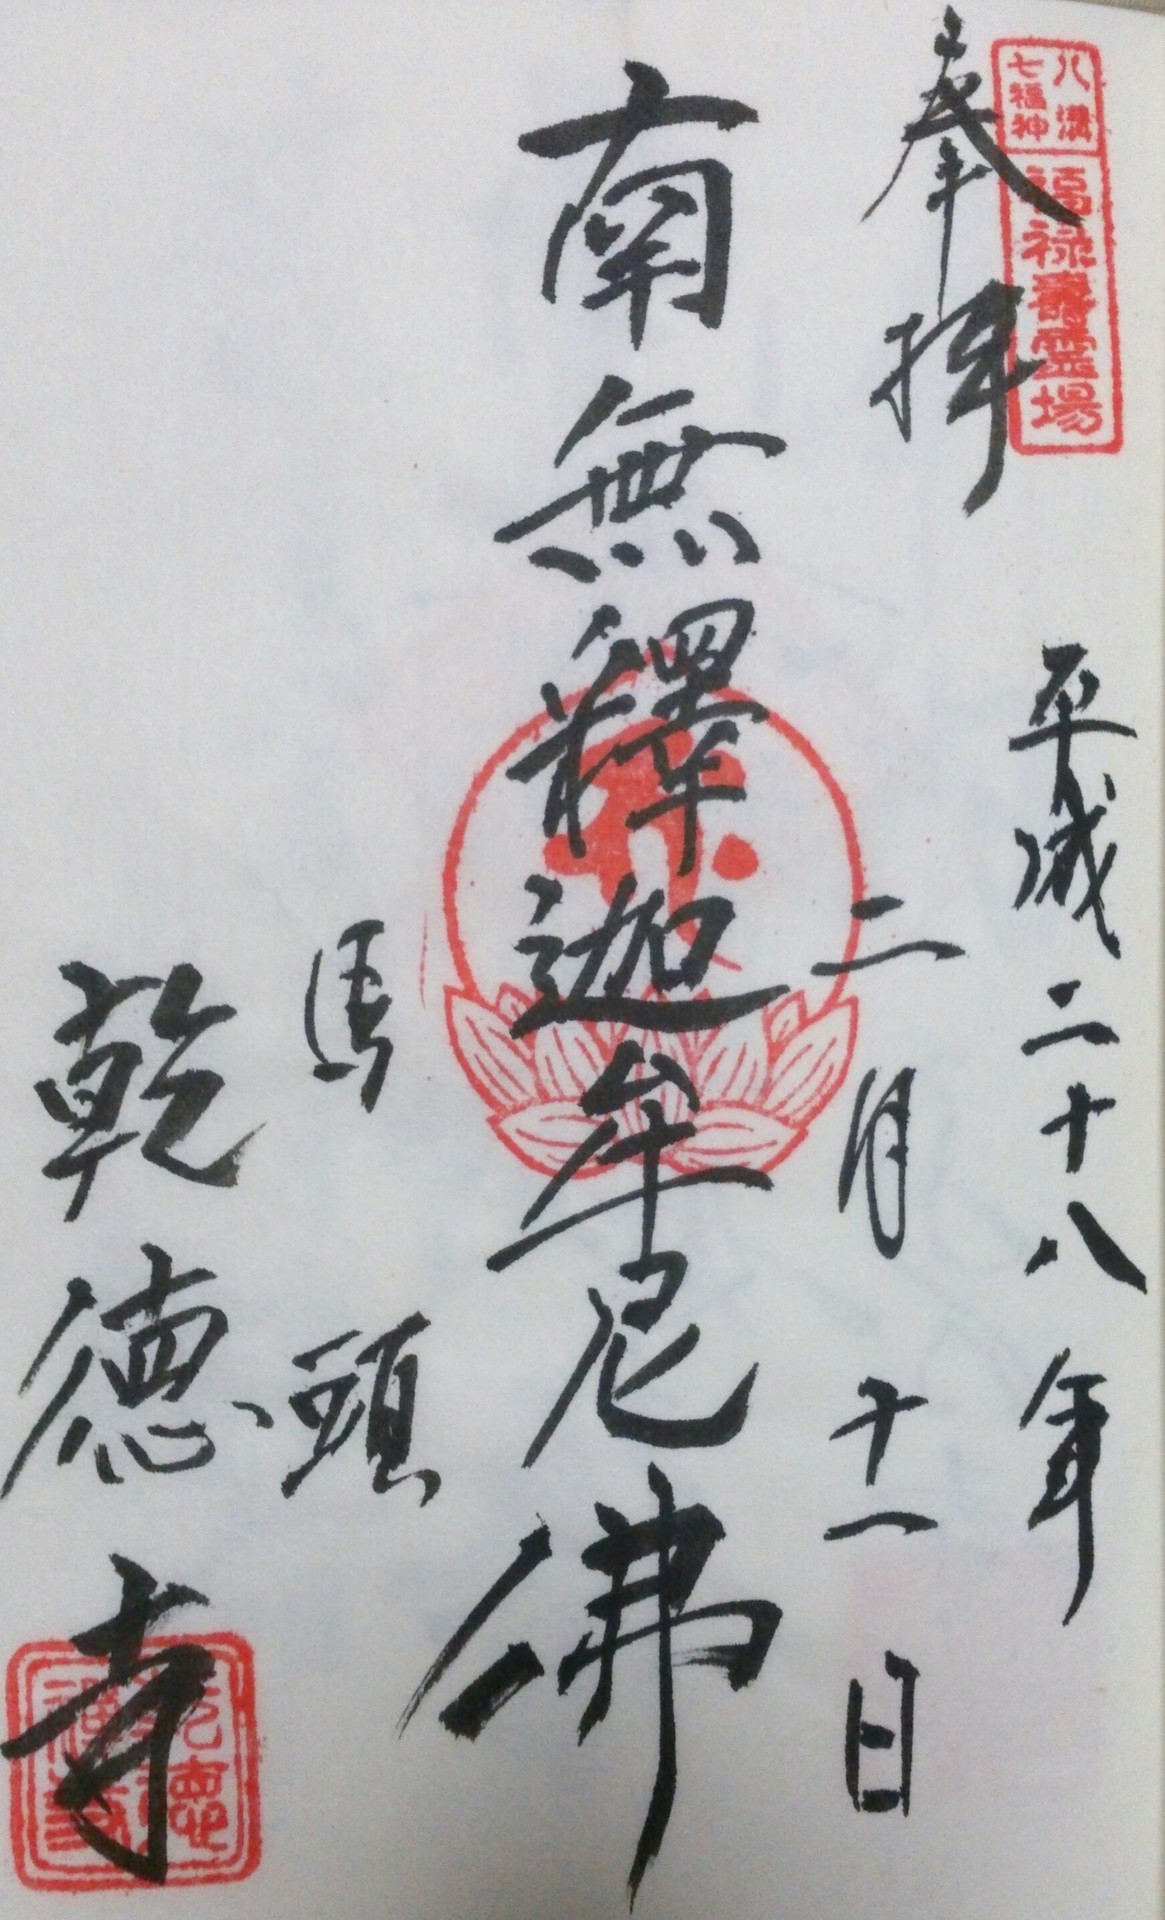 八溝
七福神
福禄壽霊場
奉拝
平成二十八年
二月十一日
南無釋迦牟尼佛
馬頭
乾徳寺